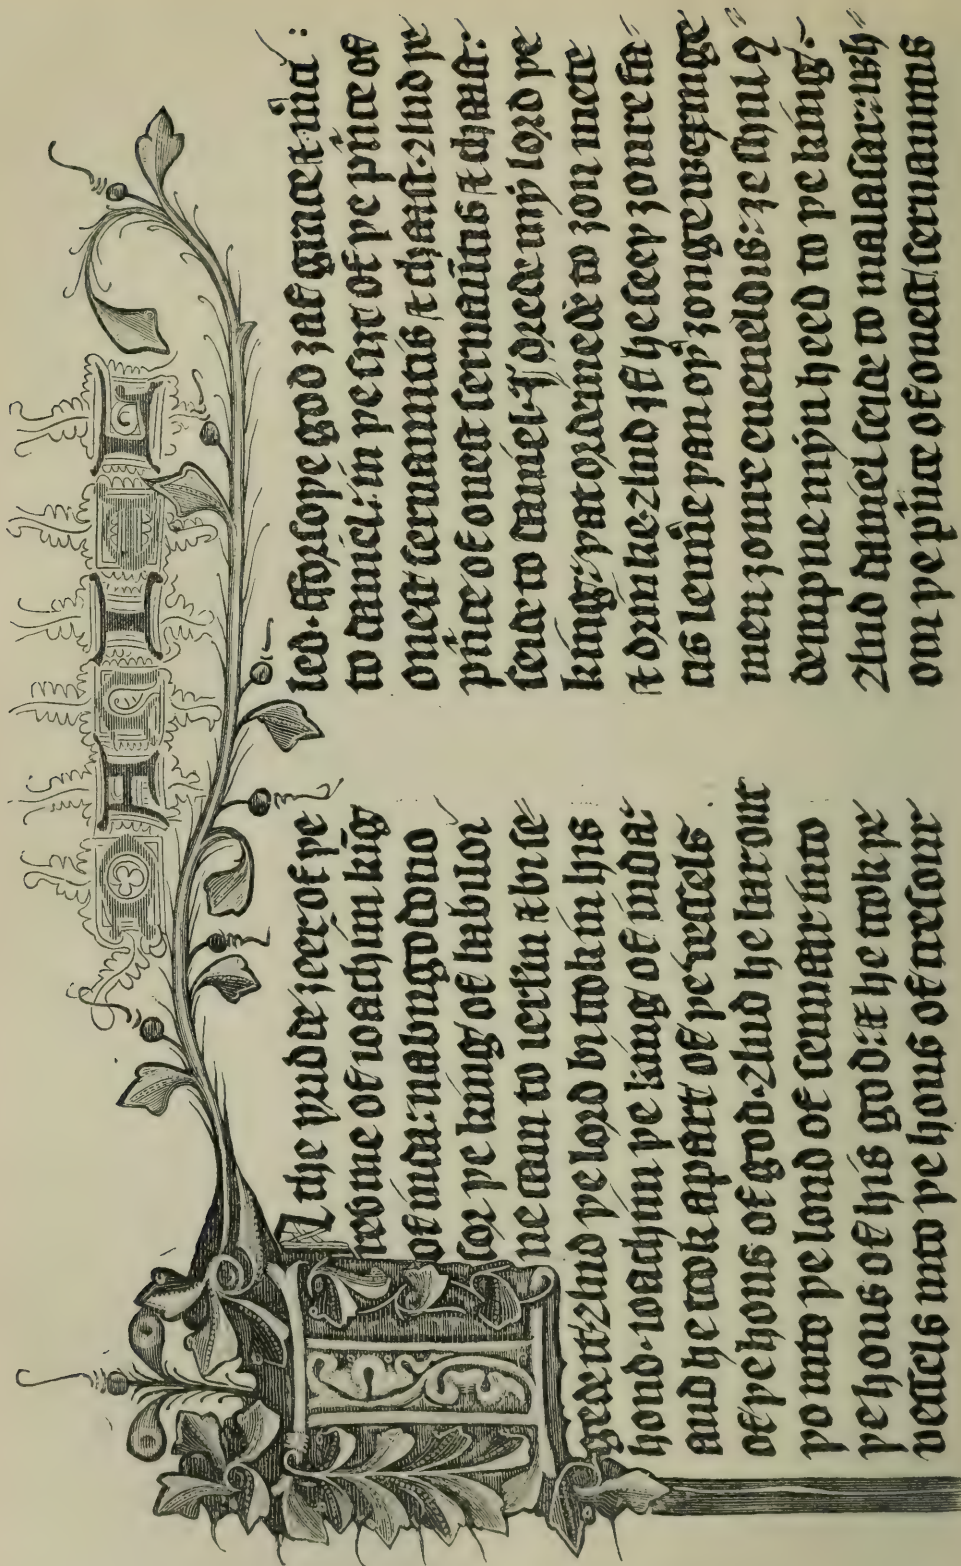 the þridde ȝeer of þe
rewme of ioachim kīg
of iuda: nabugodono
sor þe king of babilon
ne cam to ierlm & bise
gede it/ And þe lord bitook in his
hond. ioachim þe king of iuda:
and he took apart of þe vessels
of þe hous of god. And he bar out
þo into þe lond of sennaar into
þe hous of his god: & he took þe
vessels into þe hous of tresour
led. fforsoþe god ȝaf grace & m̄ci:
to daniel: in þe siȝt of þe p̄nce of
onest seruauntis & chaast. And þe
p̄nce of onest seruaūtis & chaast:
seide to daniel. I drede my lord þe
king: þat ordeinede to ȝou mete
& drinke. And if he seeþ ȝoure fa
cis lennie þan oþ̄ ȝonge wexinge
men ȝoure eueneldis: ȝe shul 9
dempne myn heed to þe king.
And daniel seide to malasar: wh
om þe p̄nce of onest seruauntis